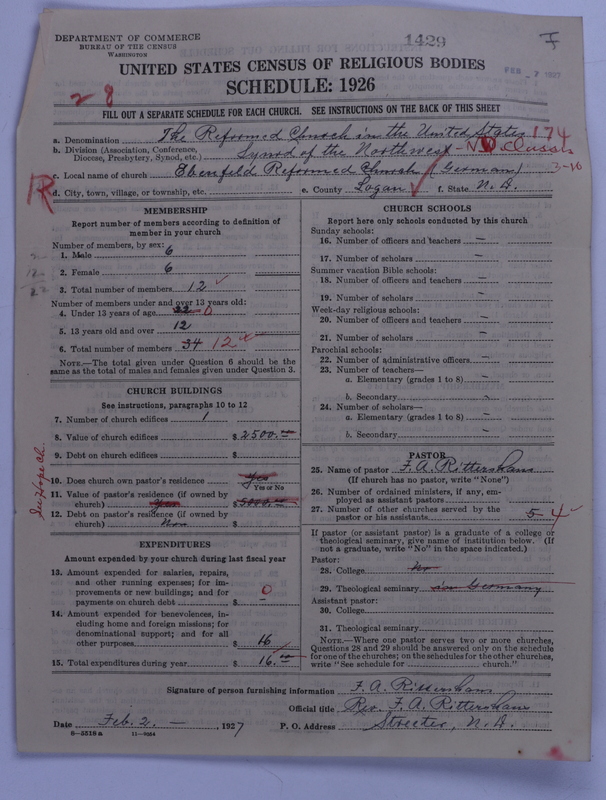 DEPARTMENT OF COMMERCE
BUREAU OF THE CENSUS
WASHINGTON
1429
F
FEB - 7 1927
UNITED STATES CENSUS OF RELIGIOUS BODIES
SCHEDULE: 1926
28
FILL OUT A SEPARATE SCHEDULE FOR EACH CHURCH. SEE INSTRUCTIONS ON THE BACK OF THIS SHEET
a. Denomination The Reformed Church in the United States 174
b. Division (Association, Conference, Diocese, Presbytery, Synod, etc.) Synod of the Northwest - N.D. Classis
3-16
c. Local name of church Ebenfeld Reformed Church (German)
R
d. City, town, village, or township, etc. e. County Logan f. State N. D.
MEMBERSHIP
Report number of members according to definition of
member in your church
Number of members, by sex:
1. Male 6
2. Female 6
3. Total number of members 12
Number of members under and over 13 years old:
4. Under 13 years of age 22 0
5. 13 years old and over 12
6. Total number of members 34 12
NOTE.—The total given under Question 6 should be
same as the total of males and females given under Question 3.
CHURCH BUILDINGS
See instructions, paragraphs 10 to 12
7. Number of church edifices 1
8. Value of church edifices $ 2500.
9. Debt on church edifices $
10. Does church own pastor's residence Yes
Yes or No
11. Value of pastor's residence (if owned by
church) $ 5000.
12. Debt on pastor's residence (if owned by
church) $
EXPENDITURES
Amount expended by your church during last fiscal year
13. Amount expended for salaries, repairs,
and other running expenses; for im-
provements or new buildings; and for
payments on church debt $ 0
14. Amount expended for benevolences, in-
cluding home and foreign missions; for
denominational support; and for all
other purposes $ 16
15. Total expenditures during year $ 16.
CHURCH SCHOOLS
Report here only schools conducted by this church
Sunday schools:
16. Number of officers and teachers —
17. Number of scholars —
Summer vacation Bible schools:
18. Number of officers and teachers —
19. Number of scholars —
Week-day religious schools:
20. Number of officers and teachers —
21. Number of scholars —
Parochial schools:
22. Number of administrative officers —
23. Number of teachers—
a. Elementary (grades 1 to 8) —
b. Secondary —
24. Number of scholars—
a. Elementary (grades 1 to 8) —
b. Secondary —
PASTOR
25. Name of pastor F. A. Rittershaus
(If church has no pastor, write "None")
26. Number of ordained ministers, if any, em-
ployed as assistant pastors
27. Number of other churches served by the
pastor or his assistants 5 4
If pastor (or assistant pastor) is a graduate of a college or
theological seminary, give name of institution below. (If
not a graduate, write "No" in the space indicated.)
Pastor:
28. College No
29. Theological seminary in Germany
Assistant pastor:
30. College
31. Theological seminary
NOTE.—Where one pastor serves two or more churches,
Questions 28 and 29 should be answered only on the schedule
for one of the churches; on the schedules for the other churches,
write "See schedule for church."
Signature of person furnishing information F. A. Rittershaus
Official title Rev. F. A. Rittershaus
Date Feb. 2. — 1927 P. O. Address Streeter, N. D.
8—5518a 11—9054